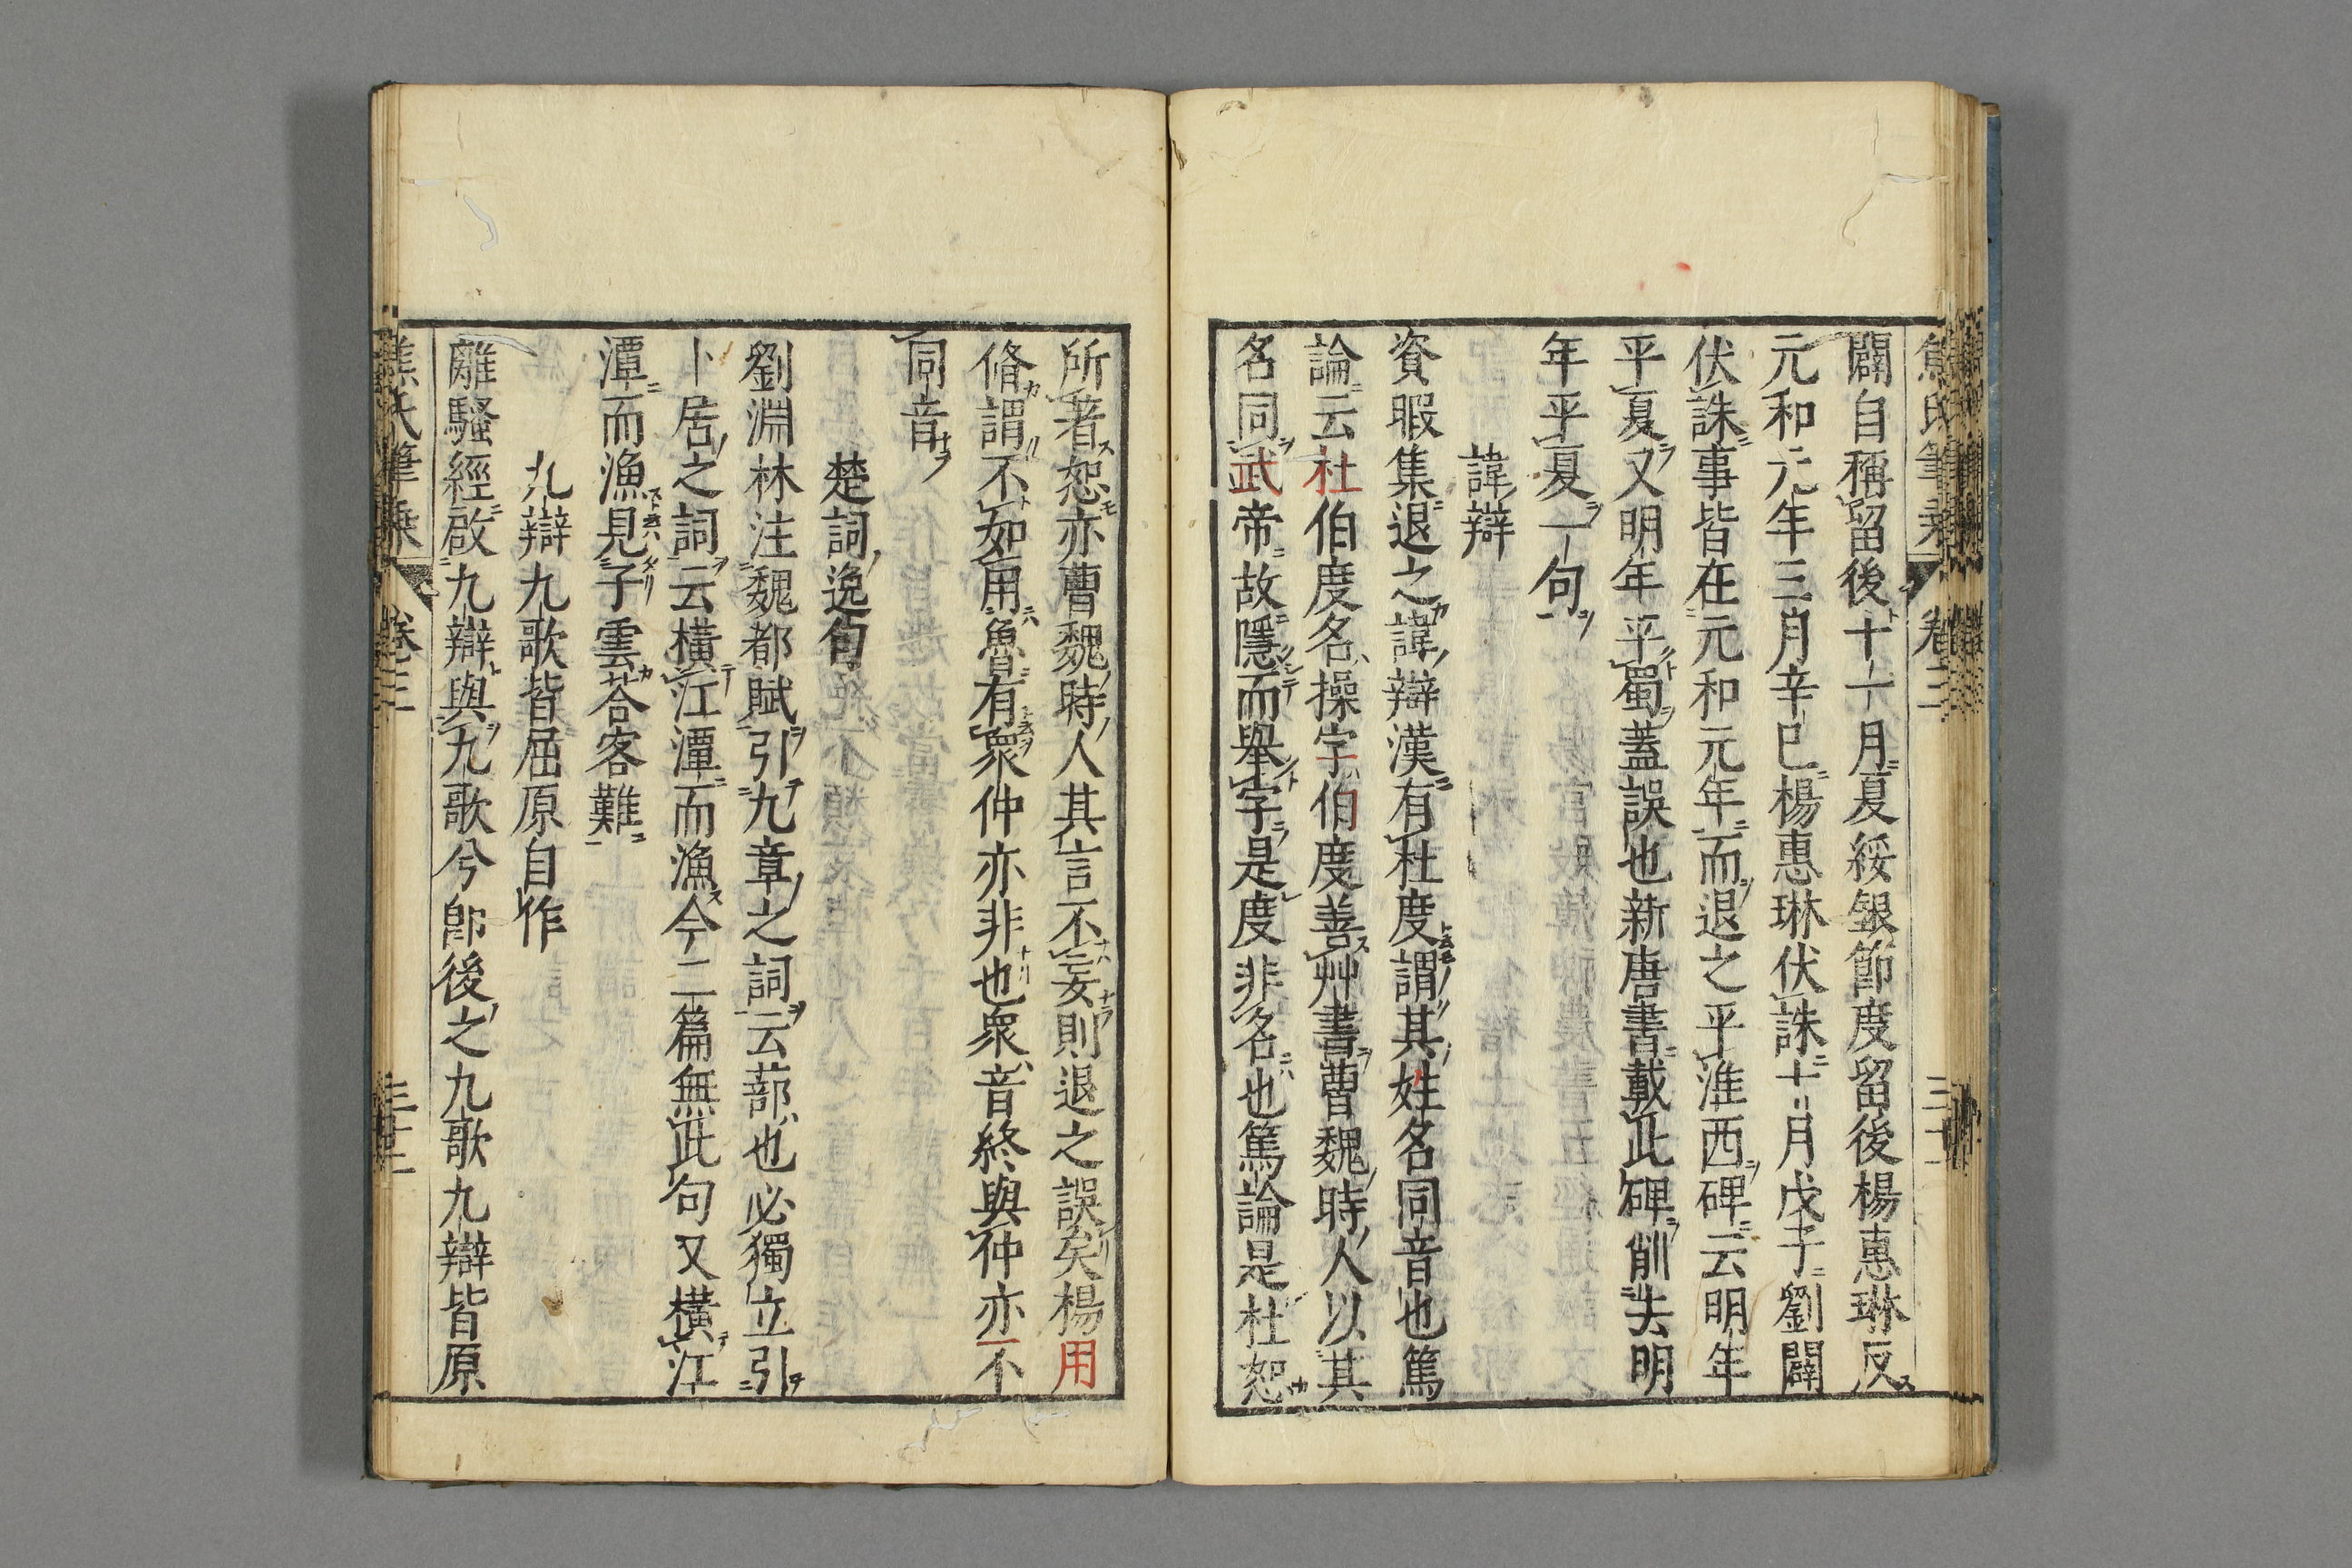 闢自稱留後十一月夏綏銀節度留後楊惠琳反
元和元年三月辛巳楊惠琳伏誅十月戊子劉闢
伏誅事皆在元和元年而退之平淮西碑云明年
平夏又明年平蜀蓋誤也新唐書載此碑削去明
年平夏一句
諱辯
資暇集退之諱辯漢有杜度謂其姓名同音也篤
論云杜伯度名操字伯度善艸書曹魏時人以其
名同武帝故隱而舉字是度非名也篤論是杜恕
所著恕亦曹魏時人其言不妄則退之誤矣楊用
脩謂不如用魯有衆仲亦非也衆音終與仲亦不
同音
楚詞逸句
劉淵林注魏都賦引九章之詞云蔀也必獨立引
卜居之詞云橫江潭而漁今二篇無此句又橫江
潭而漁見子雲荅客難
九辯九歌皆屈原自作
離騷經啟九辯與九歌兮卽後之九歌九辯皆原
焦氏筆乗
卷三